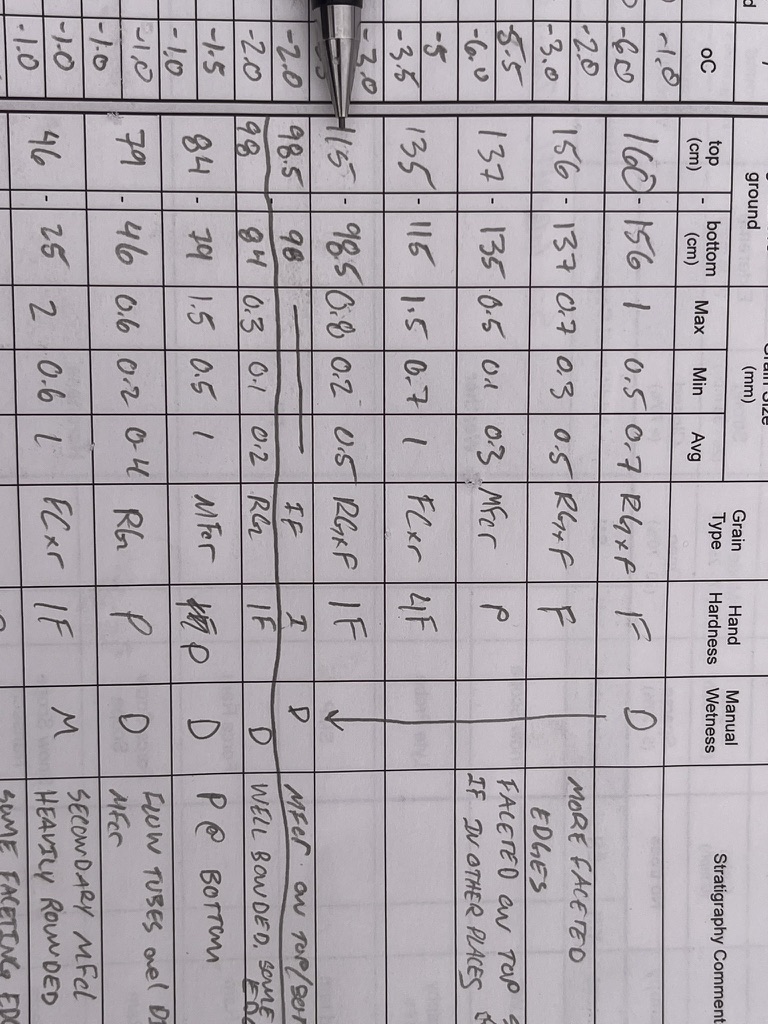 ground
Grain Size
(mm)
oC
top
(cm)
-
bottom
(cm)
Max
Min
Avg
Grain
Type
Hand
Hardness
Manual
Wetness
Stratigraphy Comment
-1.0
-6.0
160 - 156 1 0.5 0.7 RGxF 1F D
-2.0
-3.0
156 - 137 0.7 0.3 0.5 RGxF F MORE FACETED
EDGES
5.5
-6.0
137 - 135 0.5 0.1 0.3 MFcr P FACETED ON TOP
IF IN OTHER PLACES
-5
-3.5
135 - 115 1.5 0.7 1 FCxr 4F
-3.0
115 - 98.5 0.8 0.2 0.5 RGxF 1F
-2.0
98.5 98 IF I D MFcr ON TOP/BOT
-2.0
98 84 0.3 0.1 0.2 RG 1F D WELL BONDED. SOME
-1.5
-1.0
84 - 79 1.5 0.5 1 MFcr P D P @ BOTTOM
-1.0
-1.0
79 - 46 0.6 0.2 0.4 RG P D FLOW TUBES and
MFcr
-1.0
-1.0
46 - 25 2 0.6 1 FCxr 1F M SECONDARY MFcl
HEAVILY ROUNDED
SOME FACETING